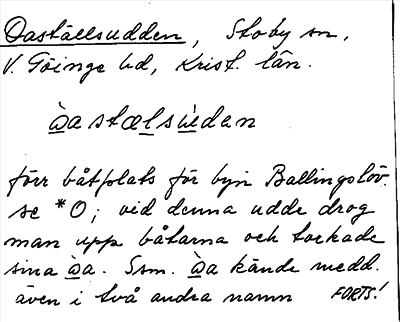 Oaställsudden, Stoby sn,
V. Göinge hd, Krist. län.
òastælsùdan
förr båtplats för byn Ballingslöv.
se *O; vid denna udde drog
man upp båtarna och torkade
sina òa. Ssm. òa kände medd.
även i två andra namn FORTS!